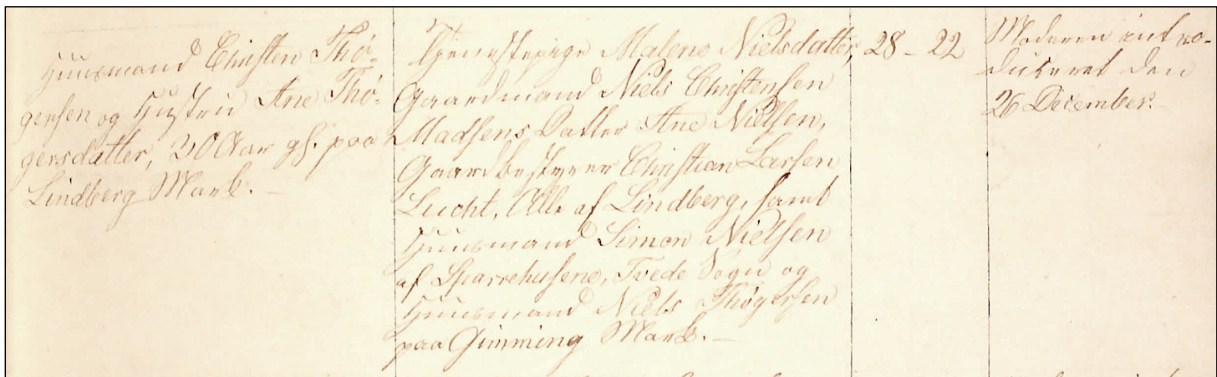 Huusmand Christen Thø-
gersen og Hustru Ane Thø-
gersdatter, 20 Aar gl. paa
Lindberg Mark. —
Tjenestepige Malene Nielsdatter,
Gaardmand Niels Christensen
Madsens Datter Ane Nielsen,
Gaardbestyrer Christian Larsen
Lucht, Alle af Lindberg, samt
Huusmand Simon Nielsen
af Sparrehusene, Tvede Sogn og
Huusmand Niels Thøgersen
paa Gimming Mark. —
28 – 22
Moderen intro-
duceret den
26 December. —